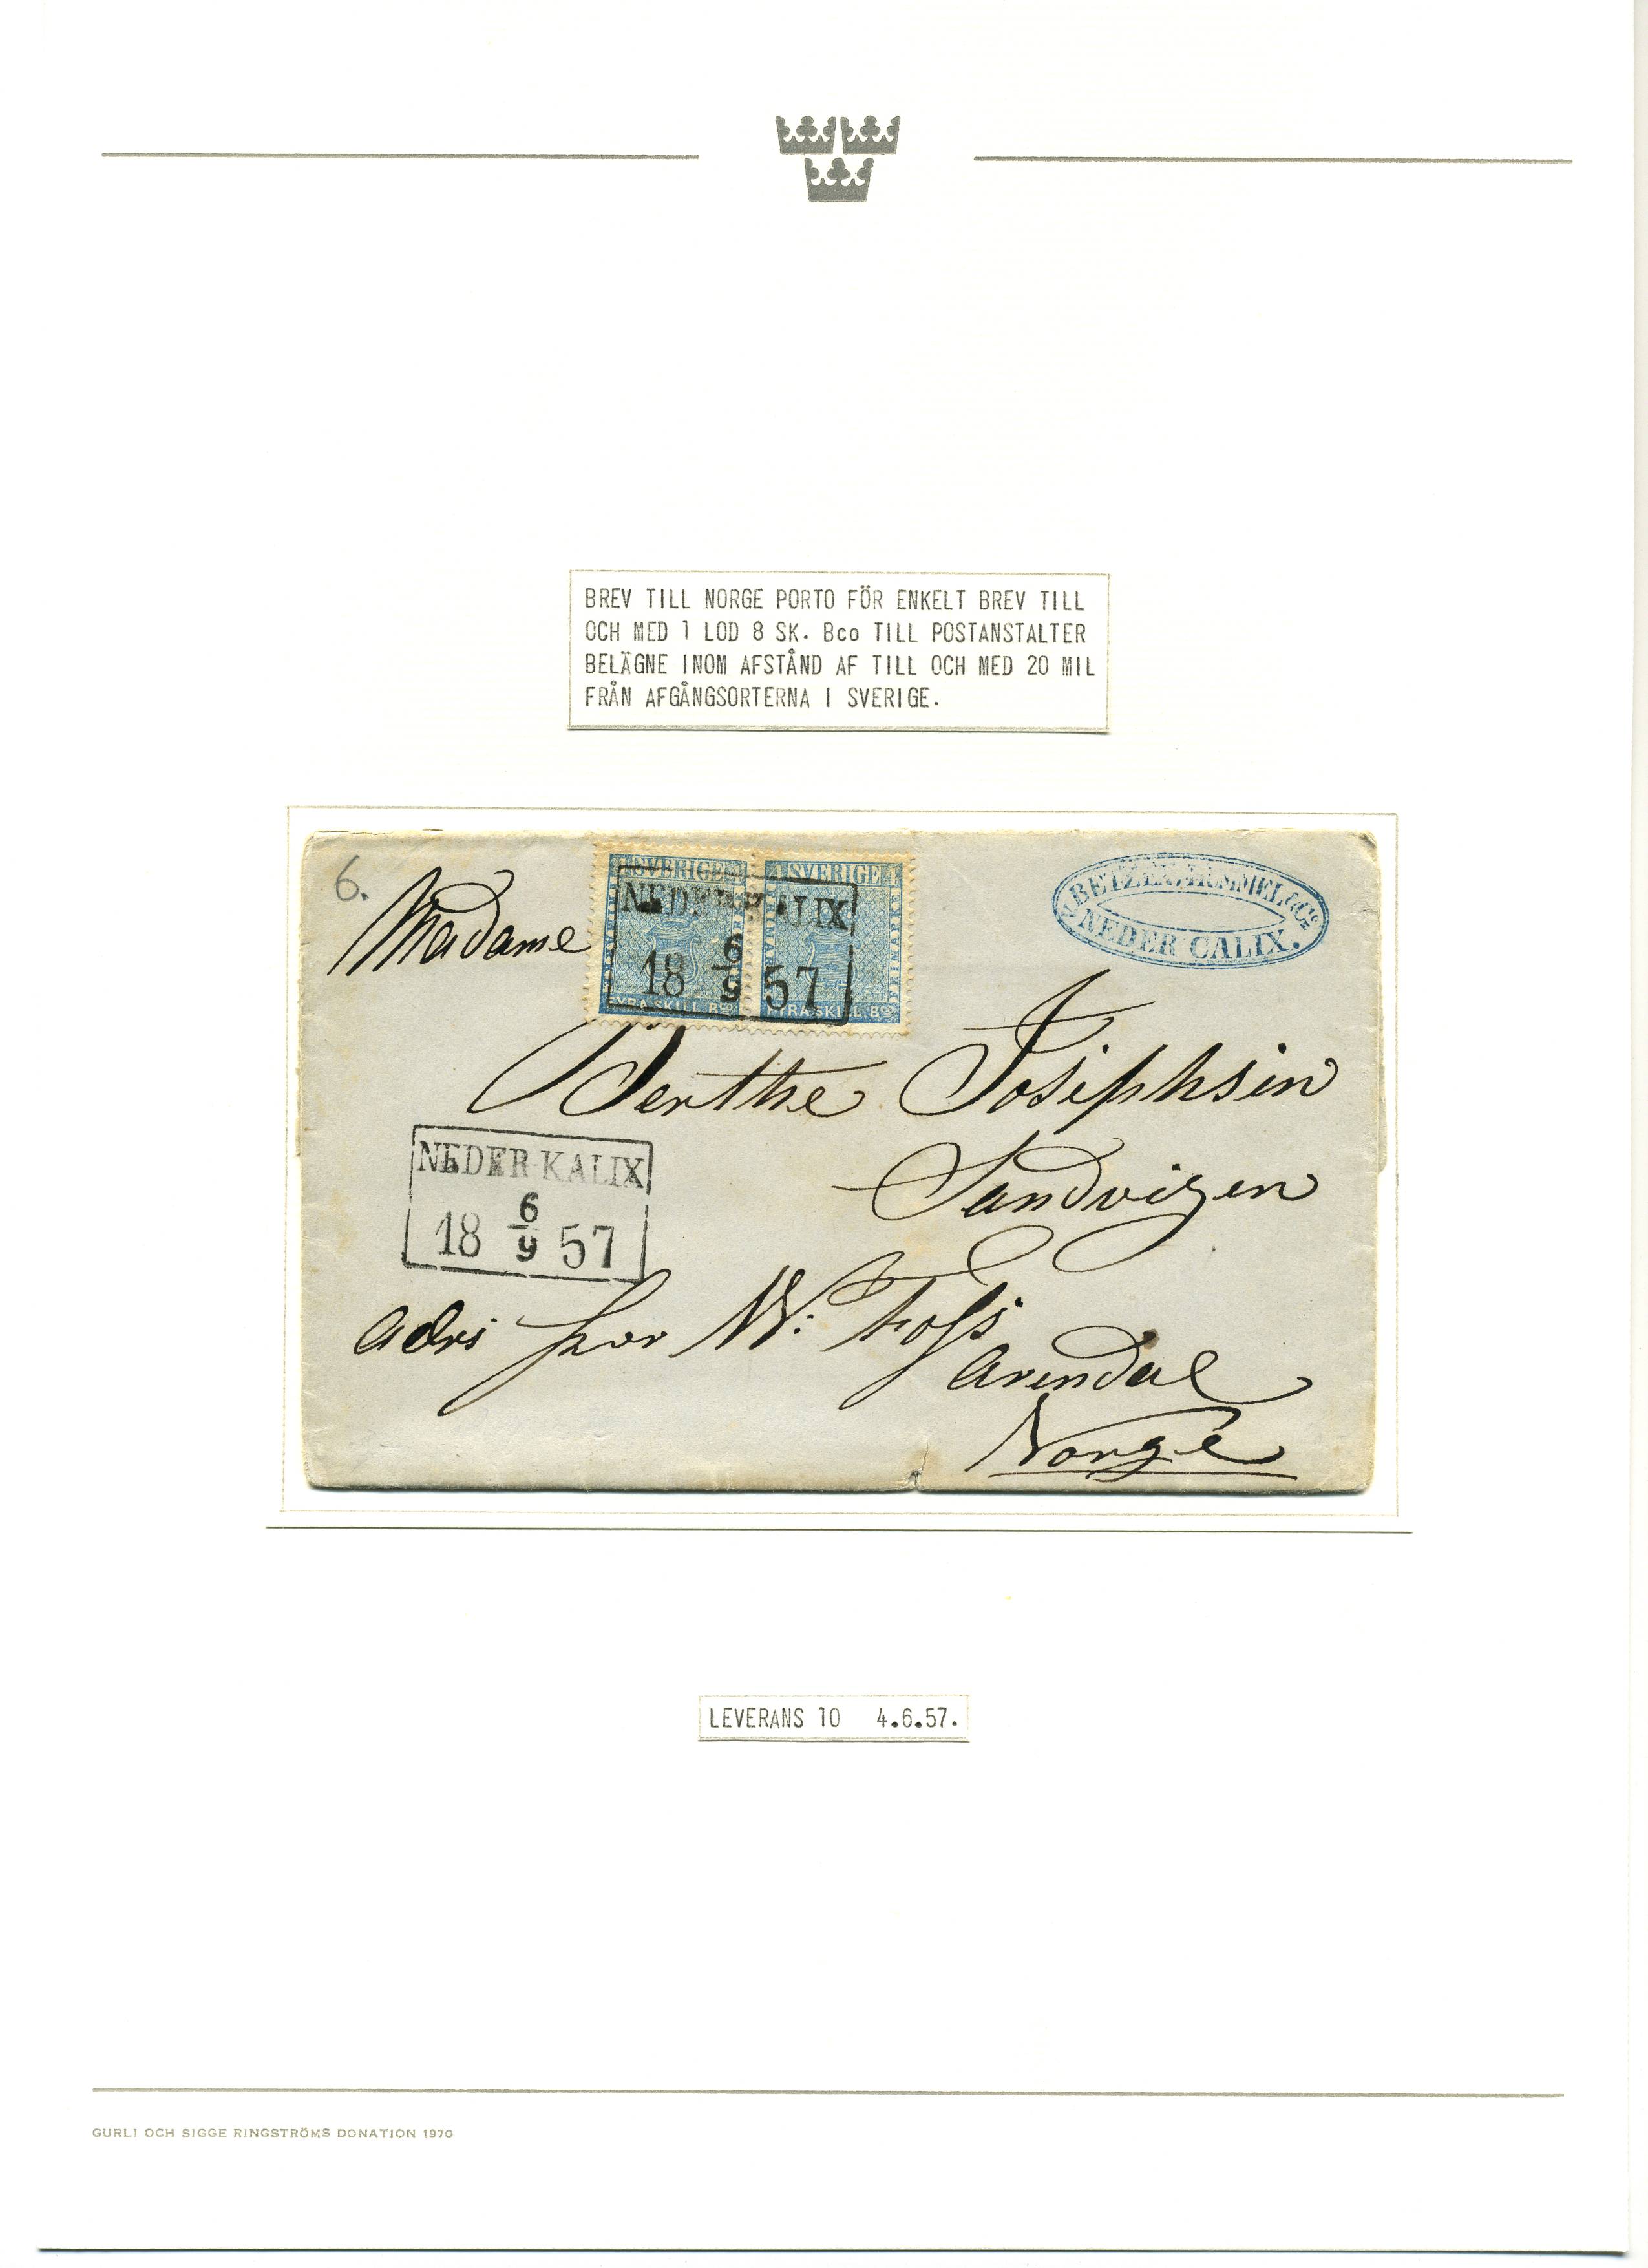 BREV TILL NORGE PORTO FÖR ENKELT BREV TILL
OCH MED 1 LOD 8 SK. Bco TILL POSTANSTALTER
BELÄGNE INOM AFSTÅND AF TILL OCH MED 20 MIL
FRÅN AFGÅNGSORTERNA I SVERIGE.
6.
4 SVERIGE 4
4 SVERIGE 4
FRIMÄRKE
FYRA SKILL. Bco
FYRA SKILL. Bco
NEDER KALIX
18 6/9 57
& Co
NEDER CALIX.
Madame
Berthe Josephsen
Sandvigen
NEDER KALIX
18 6/9 57
adrs per W: Foss
Arendal
Norge
LEVERANS 10 4.6.57.
GURLI OCH SIGGE RINGSTRÖMS DONATION 1970